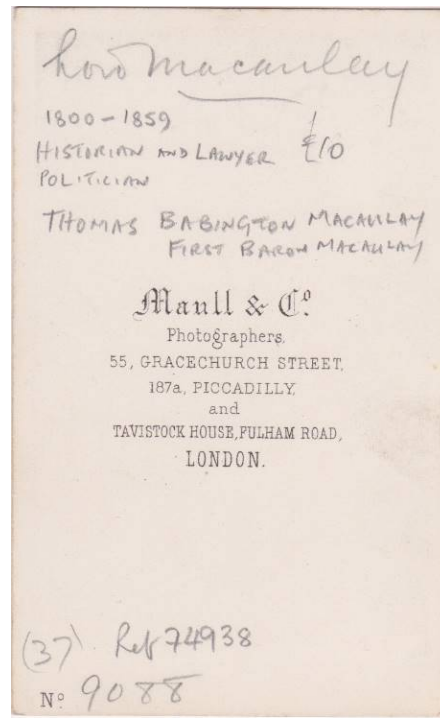 Lord Macaulay
1800-1859
HISTORIAN AND LAWYER £10
POLITICIAN
THOMAS BABINGTON MACAULAY
FIRST BARON MACAULAY
Maull & Cº
Photographers,
55, GRACECHURCH STREET,
187a, PICCADILLY,
and
TAVISTOCK HOUSE, FULHAM ROAD,
LONDON.
(37) Ref 74938
Nº 9088